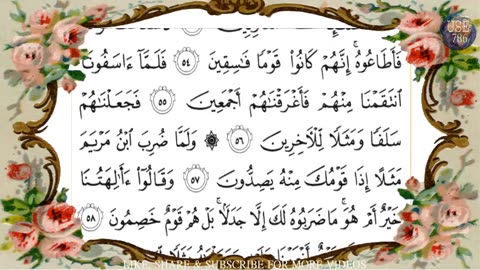 USE
786
فَأَطَاعُوهُ ۚ إِنَّهُمْ كَانُوا۟ قَوْمًا فَـٰسِقِينَ ٥٤ فَلَمَّآ ءَاسَفُونَا
ٱنتَقَمْنَا مِنْهُمْ فَأَغْرَقْنَـٰهُمْ أَجْمَعِينَ ٥٥ فَجَعَلْنَـٰهُمْ
سَلَفًا وَمَثَلًا لِّلْـَٔاخِرِينَ ٥٦ ۞ وَلَمَّا ضُرِبَ ٱبْنُ مَرْيَمَ
مَثَلًا إِذَا قَوْمُكَ مِنْهُ يَصِدُّونَ ٥٧ وَقَالُوٓا۟ ءَأَـٰلِهَتُنَا
خَيْرٌ أَمْ هُوَ ۚ مَا ضَرَبُوهُ لَكَ إِلَّا جَدَلًۢا ۚ بَلْ هُمْ قَوْمٌ خَصِمُونَ ٥٨
LIKE, SHARE & SUBSCRIBE FOR MORE VIDEOS